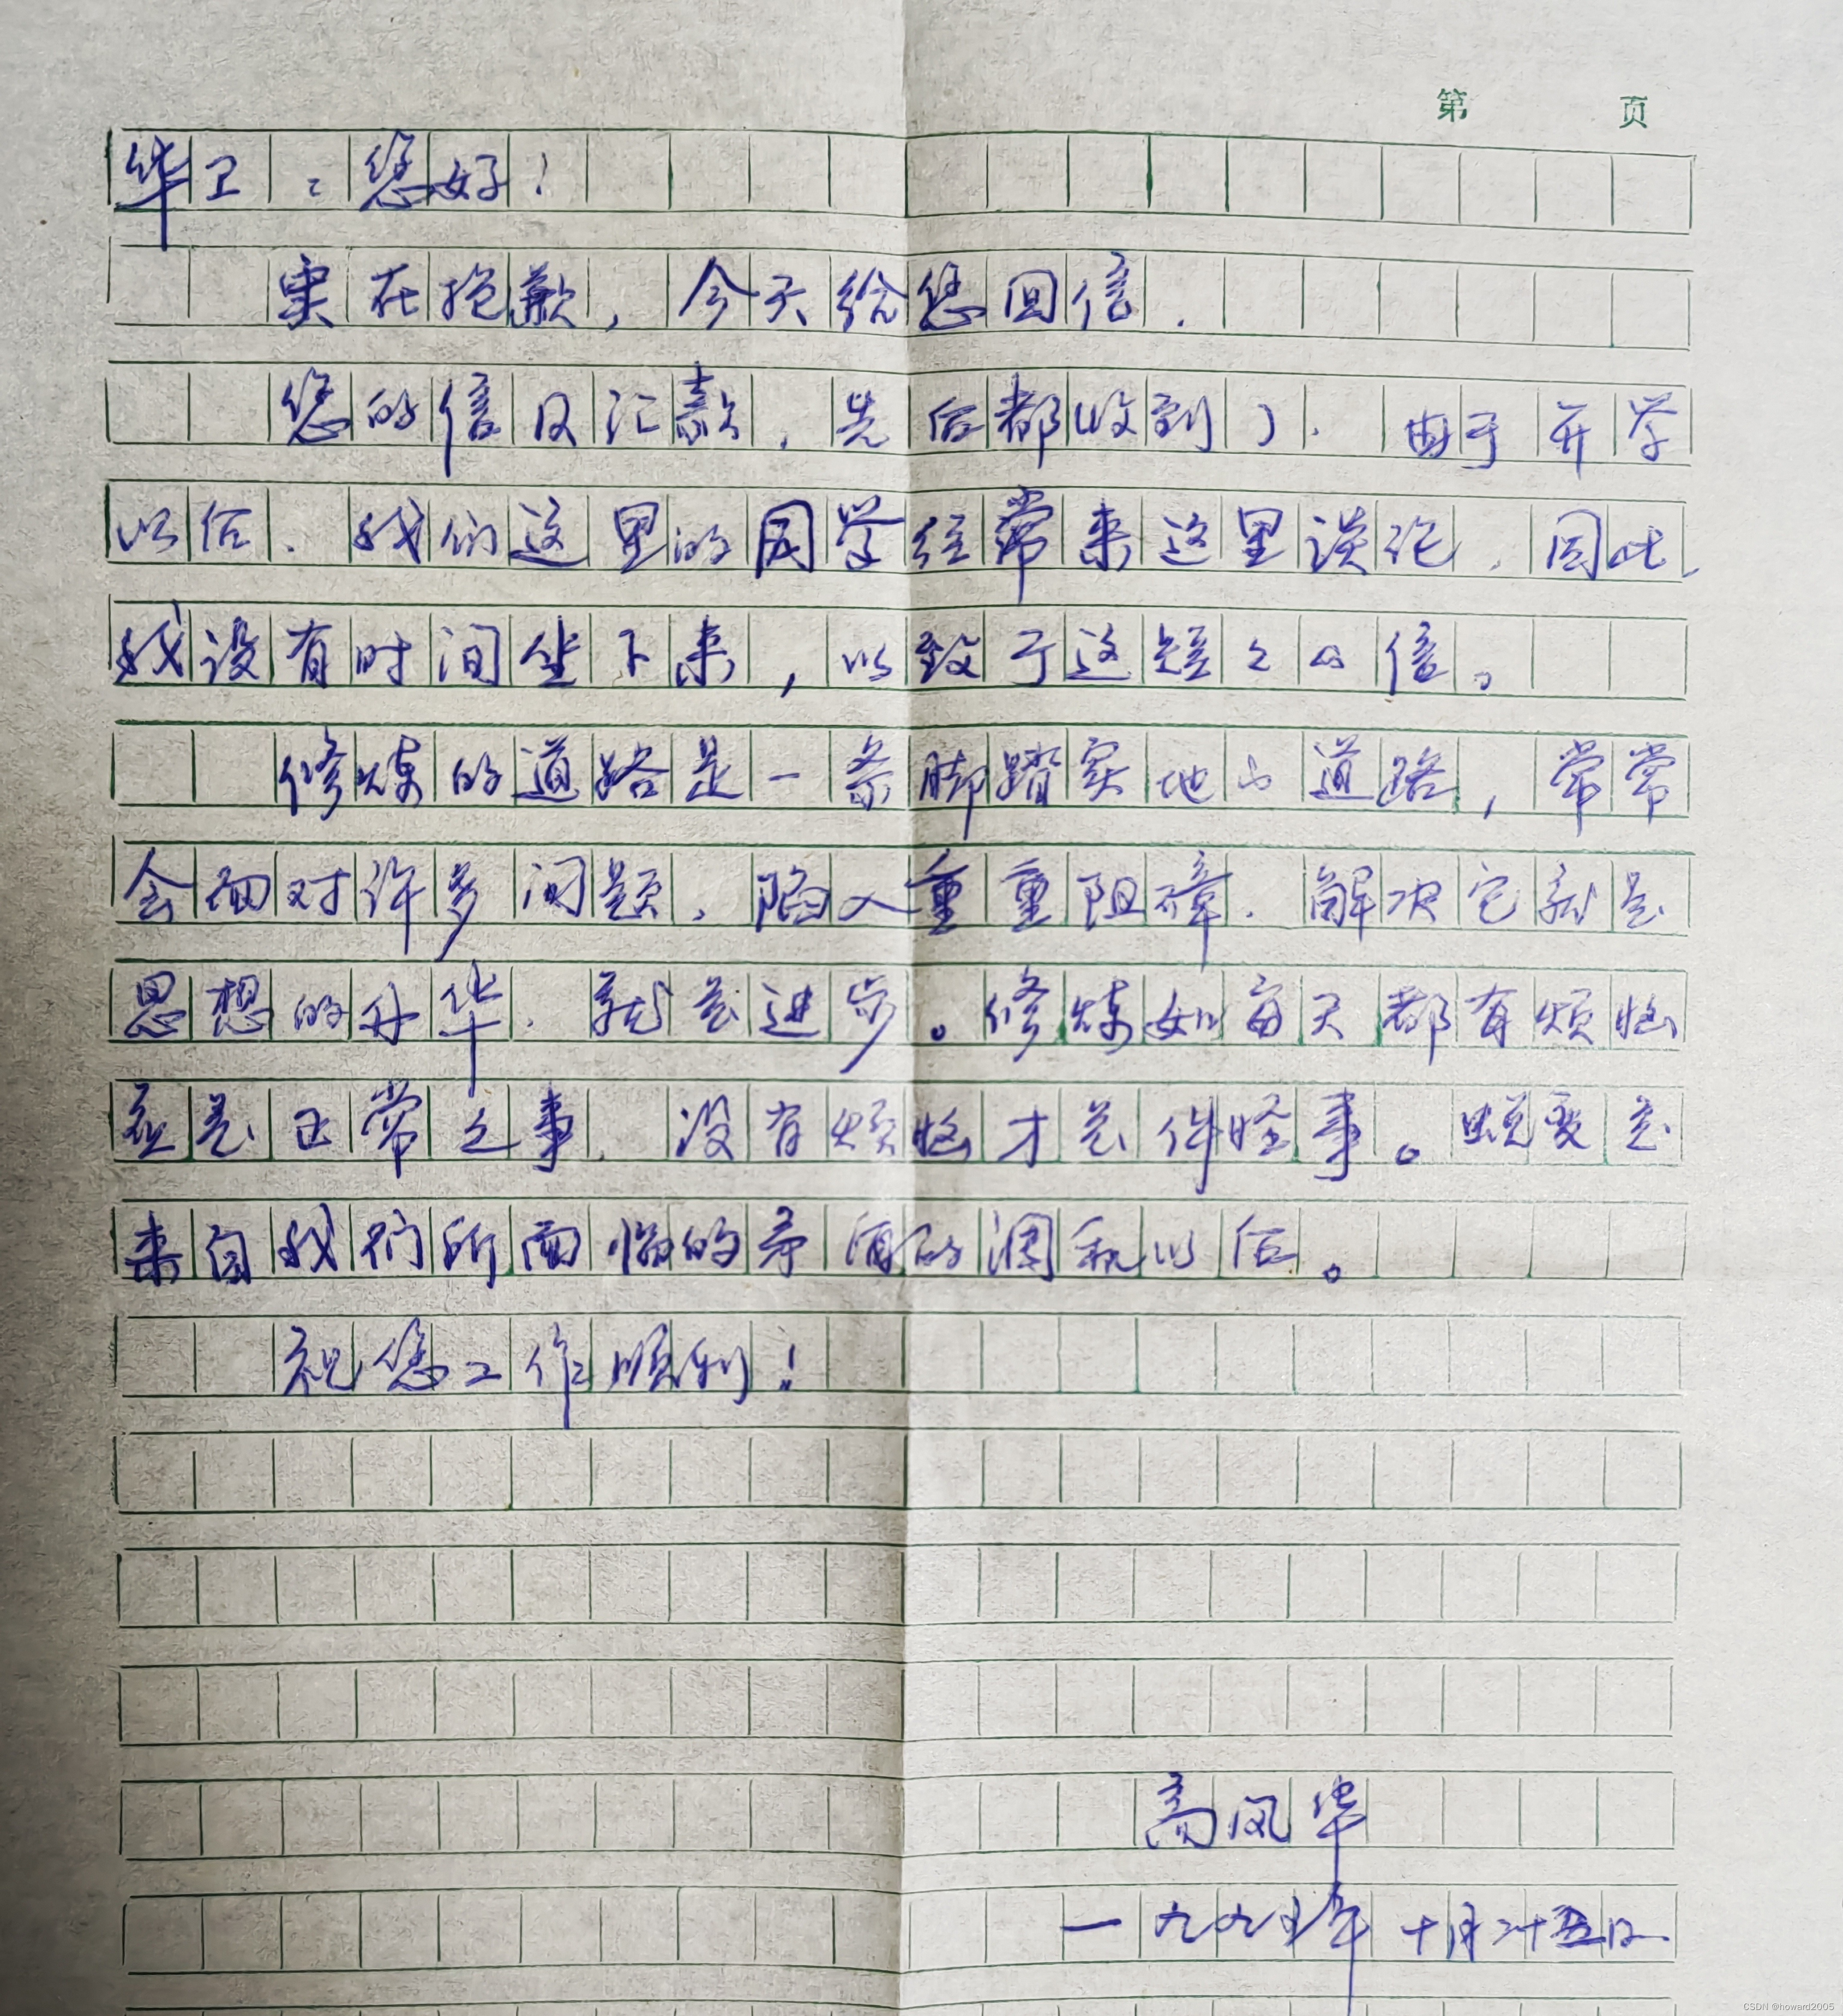 第 页
华卫：您好！
实在抱歉，今天给您回信.
您的信及汇款，先后都收到了. 由于开学
以后. 我们这里的同学经常来这里谈论，因此，
我没有时间坐下来，以致于这短之的信。
修炼的道路是一条脚踏实地的道路，常常
会面对许多问题，陷入重重阻碍. 解决它就是
思想的升华. 就是进步。修炼如每天都有烦恼
应是正常之事. 没有烦恼才是件怪事。蜕变是
来自我们所面临的矛盾的调和以后。
祝您工作顺利！
高凤华
一九九五年十月二十五日
CSDN @howard2005